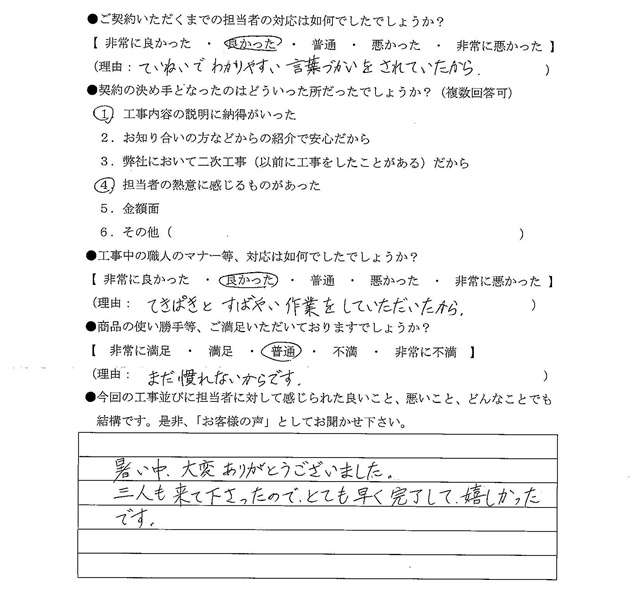 ●ご契約いただくまでの担当者の対応は如何でしたでしょうか？
【 非常に良かった ・ 良かった ・ 普通 ・ 悪かった ・ 非常に悪かった 】
（理由： ていねいで わかりやすい 言葉づかいをされていたから. ）
●契約の決め手となったのはどういった所だったでしょうか？（複数回答可）
1．工事内容の説明に納得がいった
2．お知り合いの方などからの紹介で安心だから
3．弊社において二次工事（以前に工事をしたことがある）だから
4．担当者の熱意に感じるものがあった
5．金額面
6．その他（ ）
●工事中の職人のマナー等、対応は如何でしたでしょうか？
【 非常に良かった ・ 良かった ・ 普通 ・ 悪かった ・ 非常に悪かった 】
（理由： てきぱきと すばやい 作業をしていただいたから. ）
●商品の使い勝手等、ご満足いただいておりますでしょうか？
【 非常に満足 ・ 満足 ・ 普通 ・ 不満 ・ 非常に不満 】
（理由： まだ慣れないからです. ）
●今回の工事並びに担当者に対して感じられた良いこと、悪いこと、どんなことでも
結構です。是非、「お客様の声」としてお聞かせ下さい。
暑い中、大変ありがとうございました。
三人も来て下さったので、とても早く完了して、嬉しかった
です.